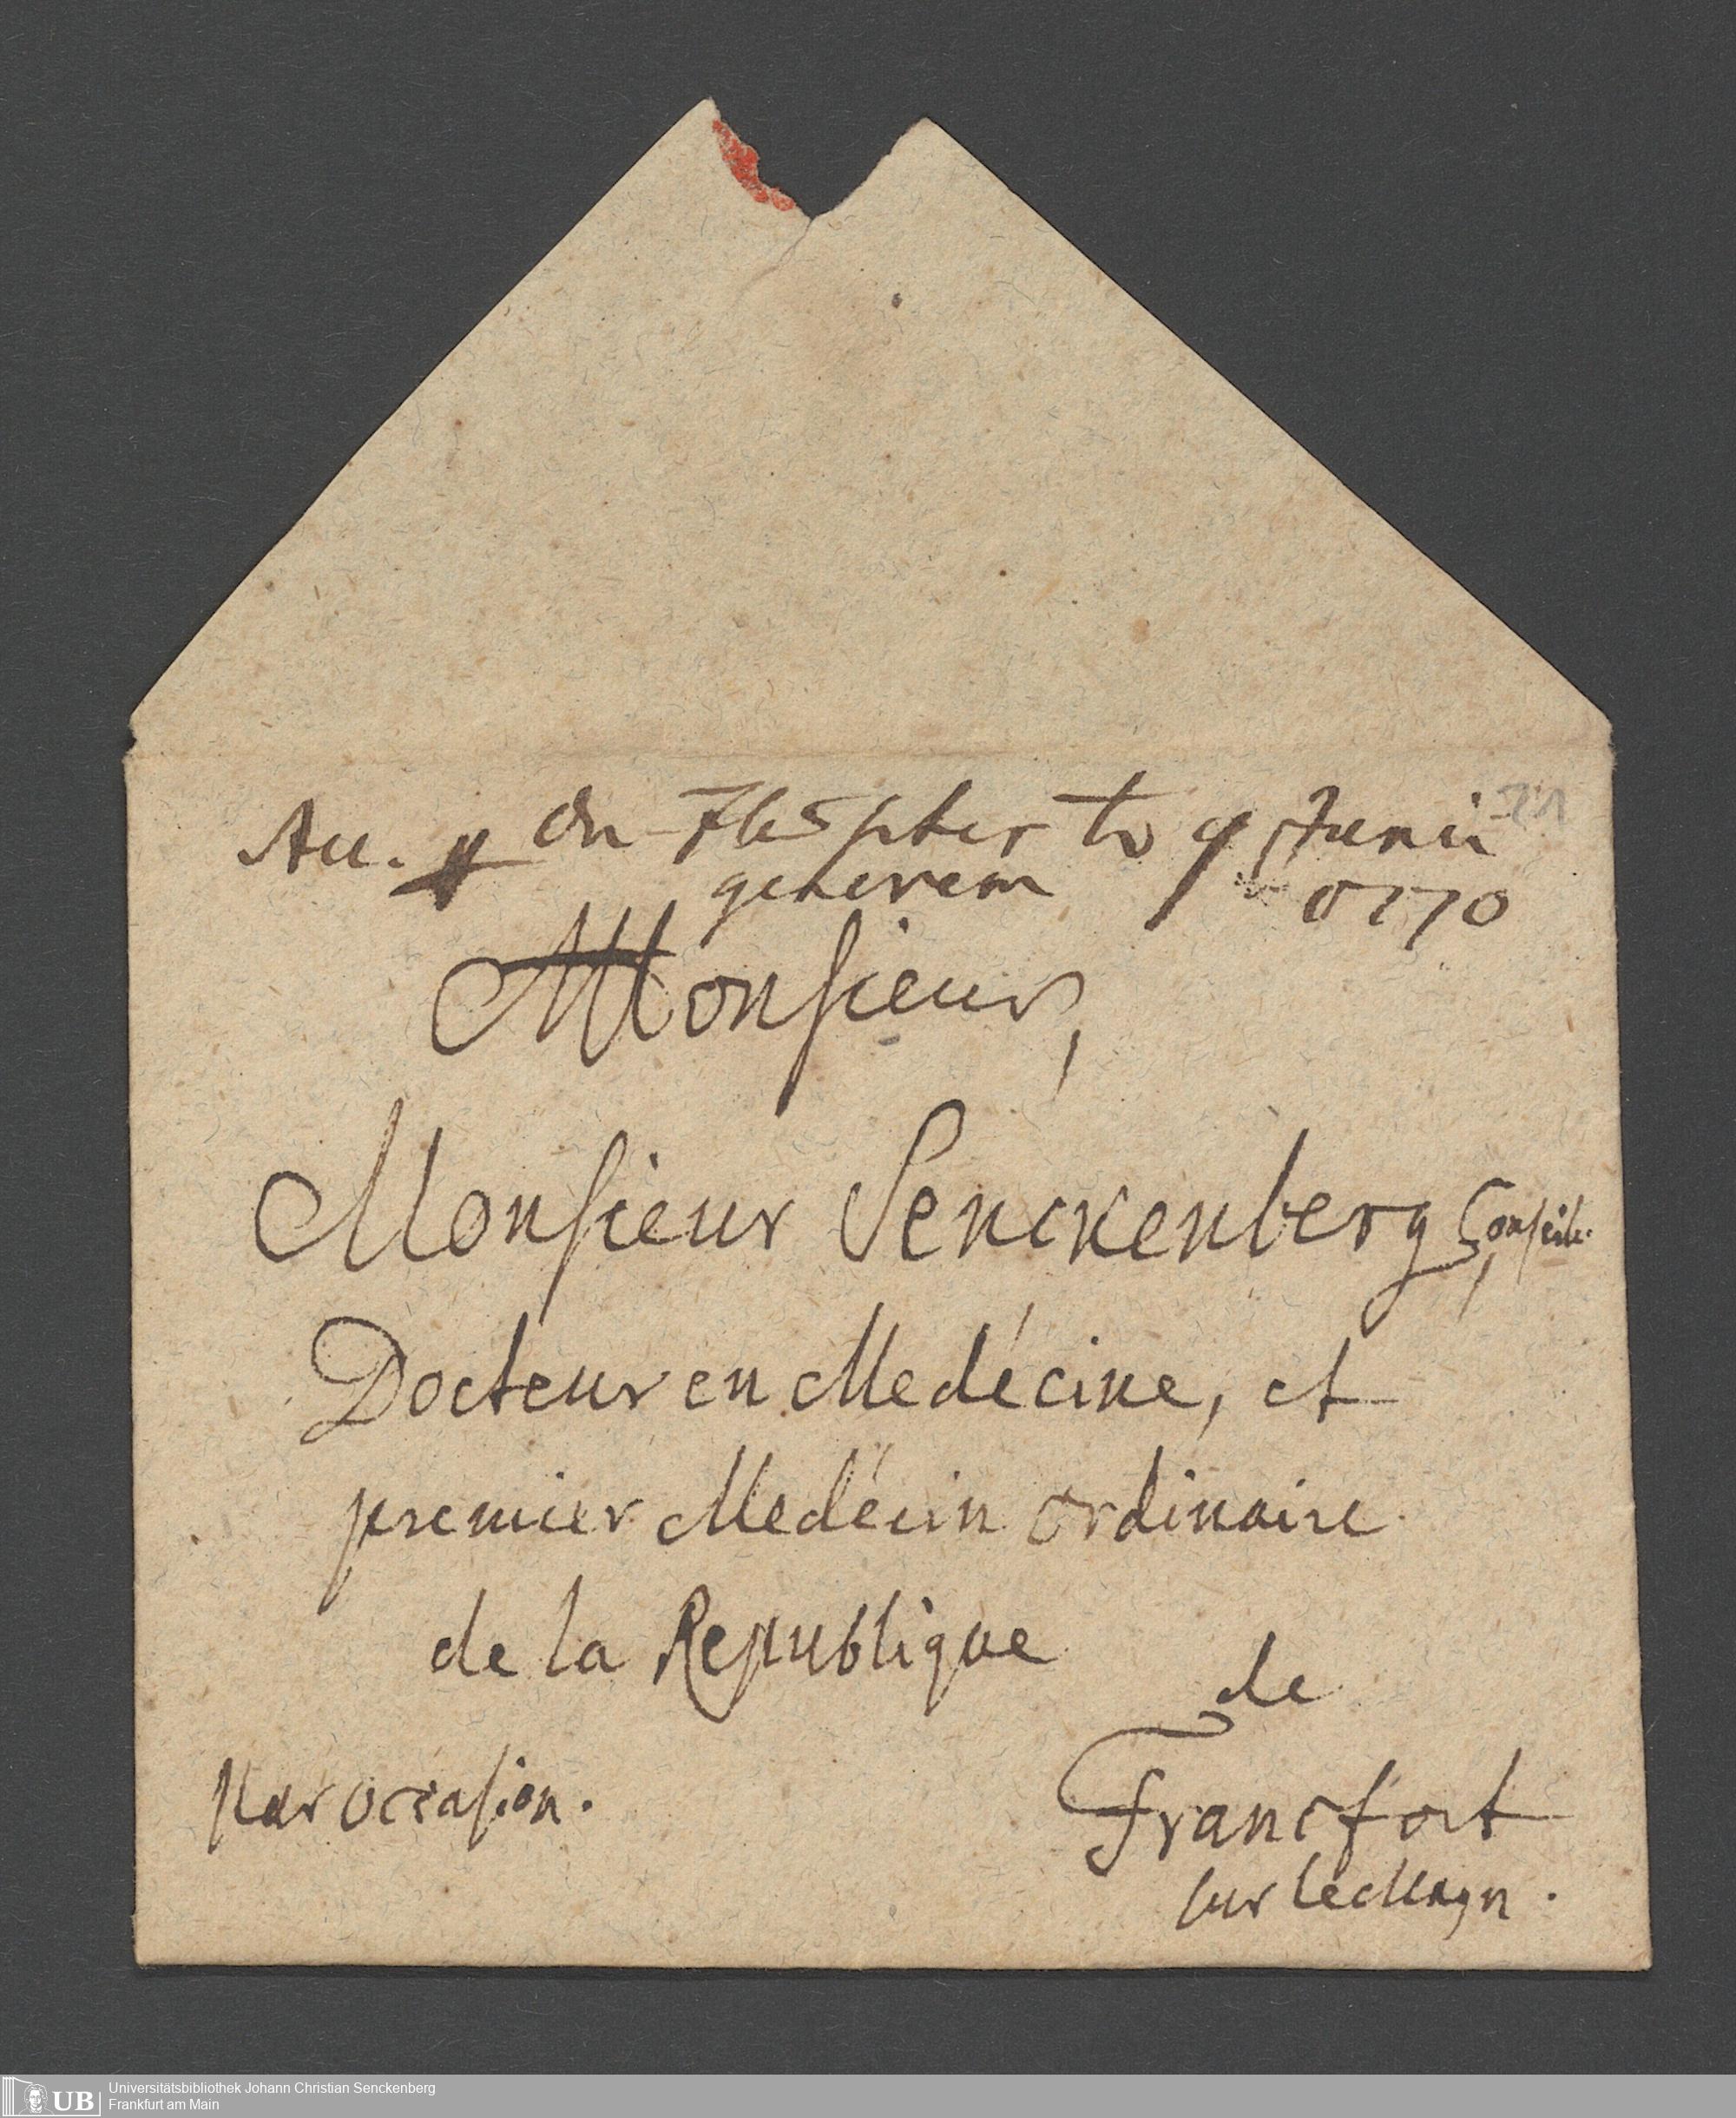 Junii
generem 1770
Monsieur,
Monsieur Senckenberg, Conseile.
Docteur en Medécine, et
premier Medécin ordinaire
de la Republique
de
par occasion.
Francfort
sur le Mayn.
UB Universitätsbibliothek Johann Christian Senckenberg
Frankfurt am Main